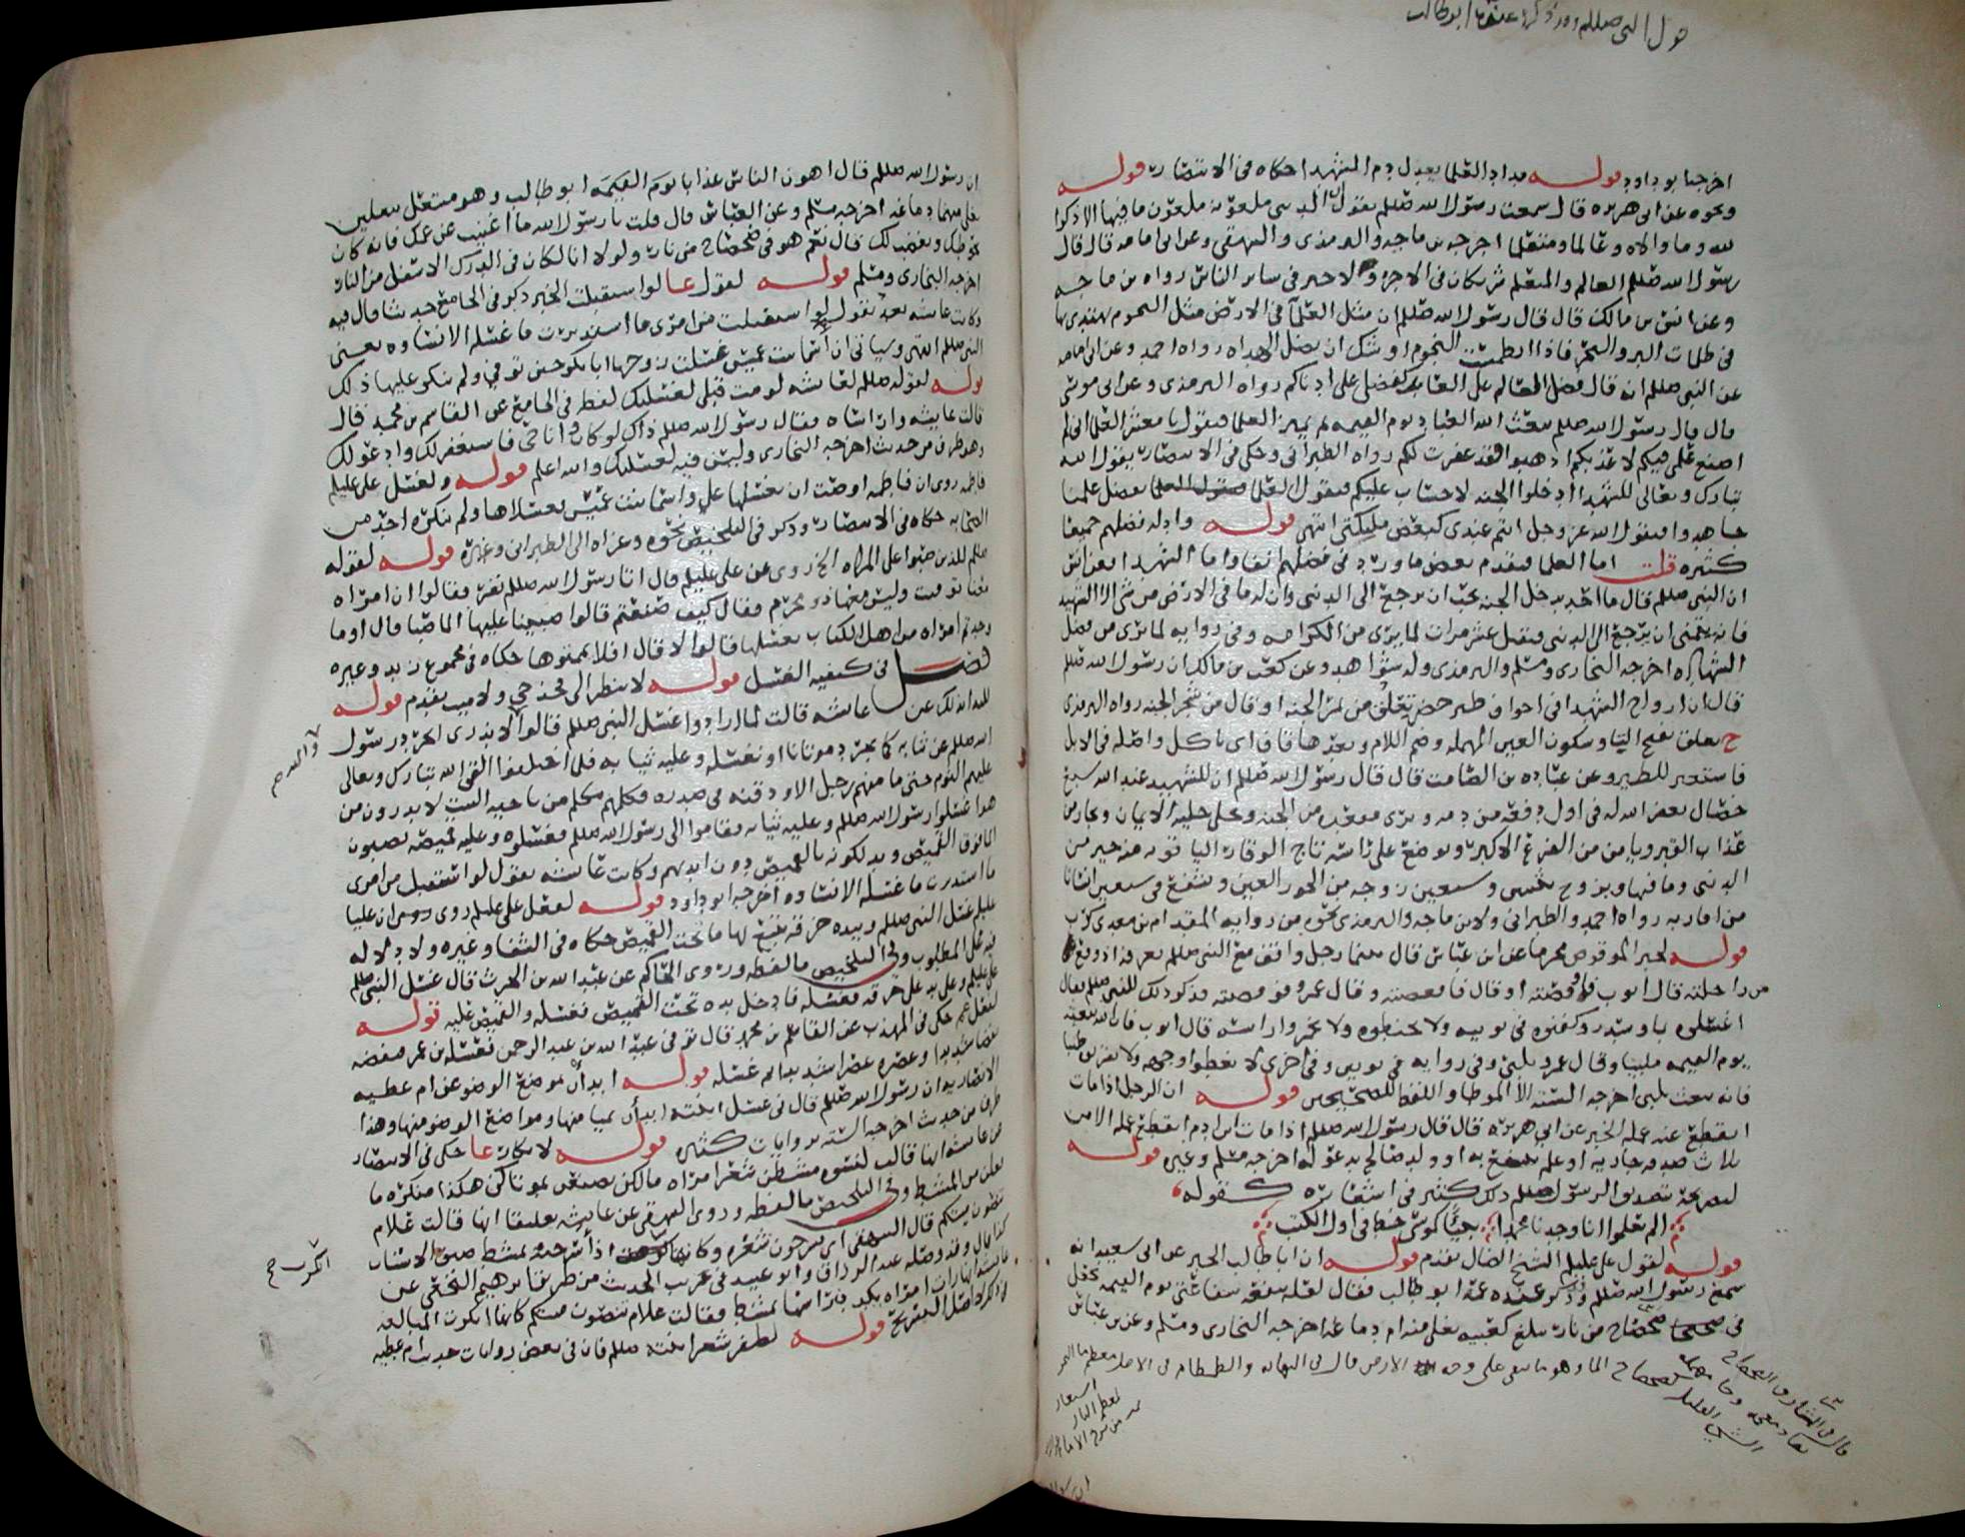 قول النبي صللم وقد ذكر عنده عمه ابو طالب
اخرجه ابو داود قوله مداد العلما يعدل دم الشهدا حكاه في الانتصار قوله
ونحوه عن ابي هريره قال سمعت رسول الله صللم يقول ان الدنيا ملعونه ملعون ما فيها الا ذكر
الله وما والاه وعالما ومتعلما اخرجه بن ماجه والترمذي والبيهقي وعن ابي امامه قال قال
رسول الله صللم العالم والمتعلم شريكان في الاجر ولا خير في ساير الناس رواه بن ماجه
وعن انس بن مالك قال قال رسول الله صللم ان مثل العلما في الارض مثل النجوم يهتدى بها
في ظلمات البر والبحر فاذا انطمست النجوم اوشك ان تضل الهداه رواه احمد وعن ابي امامه
عن النبي صللم انه قال فضل العالم على العابد كفضلي على ادناكم رواه الترمذي وعن ابي موسى
قال قال رسول الله صللم يبعث الله العباد يوم القيمه ثم يميز العلما فيقول يا معشر العلما اني لم
اضع علمي فيكم لاعذبكم اذهبوا فقد غفرت لكم رواه الطبراني وحكى في الانتصار يقول الله
تبارك وتعالى للشهدا ادخلوا الجنه لا حساب عليكم فيقول العلما بفضل علمنا
جاهدوا فيقول الله عز وجل انتم عندي كبعض مليكتي انتهى قوله وادله فضلهم جميعا
كثيره قلت اما العلما فتقدم بعض ما ورد في فضلهم انفا واما الشهدا فعن انس
ان النبي صللم قال ما احد يدخل الجنه يحب ان يرجع الى الدنيا وان له ما في الارض من شي الا الشهيد
فانه يتمنى ان يرجع الى الدنيا فيقتل عشر مرات لما يرى من الكرامه وفي روايه لما يرى من فضل
الشهاده اخرجه البخاري ومسلم والترمذي وله شواهد وعن كعب بن مالك ان رسول الله صللم
قال ان ارواح الشهدا في اجواف طير خضر تعلق من ثمر الجنه او قال من شجر الجنه رواه الترمذي
ح تعلق بفتح التا وسكون العين المهمله وضم اللام وبعدها قاف اي تاكل واصله في الابل
فاستعير للطير وعن عباده بن الصامت قال قال رسول الله صللم ان للشهيد عند الله سبع
خصال يغفر الله له في اول دفعه من دمه ويرى مقعده من الجنه ويحلى حليه الايمان ويجار من
عذاب القبر ويامن من الفزع الاكبر ويوضع على راسه تاج الوقار الياقوته منه خير من
الدنيا وما فيها ويزوج بخمس وسبعين زوجه من الحور العين ويشفع في سبعين انسانا
من اقاربه رواه احمد والطبراني ولابن ماجه والترمذي نحوه من روايه المقدام بن معدي كرب
قوله لخبر الموقوص محرما عن ابن عباس قال بينما رجل واقف مع النبي صللم بعرفه اذ وقع
من راحلته قال ايوب فاوقصته او قال فاقعصته وقال عمرو فوقصته فذكر ذلك للنبي صللم فقال
اغسلوه بما وسدر وكفنوه في ثوبيه ولا تحنطوه ولا تخمروا راسه قال ايوب فان الله يبعثه
يوم القيمه ملبيا وقال عمرو يلبي وفي روايه في ثوبين وفي اخرى لا تغطوا وجهه ولا تقربوه طيبا
فانه يبعث يلبي اخرجه السته الا الموطا واللفظ للصحيحين قوله ان الرجل اذا مات
انقطع عنه عمله الخبر عن ابي هريره قال قال رسول الله صللم اذا مات ابن ادم انقطع عمله الا من
ثلاث صدقه جاريه او علم ينتفع به او ولد صالح يدعو له اخرجه مسلم وغيره قوله
لتصريحه بتصديق الرسول صللم ذلك كثير في اشعاره كقوله
الم تعلموا انا وجدنا محمدا نبيا كموسى خط في اول الكتب
قوله لقول علي عليلم الشيخ الضال تقدم قوله ان ابا طالب الخبر عن ابي سعيد انه
سمع رسول الله صللم وذكر عنده عمه ابو طالب فقال لعله تنفعه شفاعتي يوم القيمه فجعل
في ضحضاح من نار يبلغ كعبيه يغلي منه ام دماغه اخرجه البخاري ومسلم وعن بن عباس
ان رسول الله صللم قال اهون الناس عذابا يوم القيمه ابو طالب وهو متنعل بنعلين
يغلي منهما دماغه اخرجه مسلم وعن العباس قال قلت يا رسول الله ما اغنيت عن عمك فانه كان
يحوطك ويغضب لك قال نعم هو في ضحضاح من نار ولولا انا لكان في الدرك الاسفل من النار
اخرجه البخاري ومسلم قوله لقول عا لو استقبلت الخبر ذكر في الجامع حديثا قال فيه
وكانت عايشه بعد تقول لو استقبلت من امري ما استدبرت ما غسله الا نساوه يعني
النبي صللم انتهى وسياتي ان اسما بنت عميس غسلت زوجها ابا بكر حين توفي ولم ينكر عليها ذلك
قوله لقوله صللم لعايشه لو مت قبلي لغسلتك لفظه في الجامع عن القاسم بن محمد قال
قالت عايشه واراساه فقال رسول الله صللم ذاك لو كان وانا حي فاستغفر لك وادعو لك
وهو طرف من حديث اخرجه البخاري وليس فيه لغسلتك والله اعلم قوله ولغسل علي عليلم
فاطمه روي ان فاطمه اوصت ان يغسلها علي واسما بنت عميس فغسلاها ولم ينكره احد من
الصحابه حكاه في الانتصار وذكر في التلخيص نحوه وعزاه الى الطبراني وغيره قوله لقوله
صللم للذين صبوا على المراه الخ روي عن علي عليلم قال اتا رسول الله صللم نفر فقالوا ان امراه
معنا توفيت وليس معها ذو محرم فقال كيف صنعتم قالوا صببنا عليها الما صبا قال اوما
وجدتم امراه من اهل الكتاب تغسلها قالوا لا قال افلا يممتوها حكاه في مجموع زيد وغيره
فصل في كيفيه الغسل قوله لا تنظر الى فخذ حي ولا ميت تقدم قوله
عن عايشه قالت لما ارادوا غسل النبي صللم قالوا لا ندري انجرد رسول
الله صللم عن ثيابه كما نجرد موتانا او نغسله وعليه ثيابه فلما اختلفوا القى الله تبارك وتعالى
عليهم النوم حتى ما منهم رجل الا وذقنه في صدره فكلمهم مكلم من ناحيه البيت لا يدرون من
هو اغسلوا رسول الله صللم وعليه ثيابه فقاموا الى رسول الله صللم فغسلوه وعليه قميصه يصبون
الما فوق القميص ويدلكونه بالقميص دون ايديهم وكانت عايشه تقول لو استقبلت من امري
ما استدبرت ما غسله الا نساوه اخرجه ابو داود قوله لفعل علي عليلم روي ان عليا
عليلم غسل النبي صللم وبيده خرقه يتبع بها ما تحت القميص حكاه في الشفا وغيره ولا دلاله
فيه على المطلوب وفي التلخيص ما لفظه وروى الحاكم عن عبد الله بن الحرث قال غسل النبي صللم
علي عليلم وعلى يد علي خرقه فغسله فادخل يده تحت القميص فغسله والقميص عليه قوله
لفعل عم حكى في المهذب عن القاسم بن محمد قال توفي عبد الله بن عبد الرحمن فغسله بن عمر فنفضه
نفضا شديدا وعصره عصرا شديدا ثم غسله قوله ابدأن بمواضع الوضو عن ام عطيه
الانصاريه ان رسول الله صللم قال في غسل ابنته ابدأن بميامنها ومواضع الوضو منها وهذا
طرف من حديث اخرجه السته بروايات كثيره قوله لانكار عا حكى في الانتصار
عن عايشه انها قالت لنسوه مشطن شعر امراه مالكن تنصون موتاكن هكذا منكره ما
فعلن من المشط وفي التلخيص ما لفظه وروى البيهقي عن عايشه تعليقا انها قالت علام
تنصون ميتكم قال البيهقي اي تسرحون شعره وكانها كرهت اذا سرحه بمشط ضيق الاسنان
كذا قال وقد وصله عبد الرزاق وابو عبيد في غريب الحديث من طريق ابراهيم النخعي عن
عايشه انها رات امراه يكدون راسها بمشط فقالت علام تنصون ميتكم كانها انكرت المبالغه
في ذلك لا اصل التسريح قوله لضفر شعر ابنته صللم فان في بعض روايات حديث ام عطيه